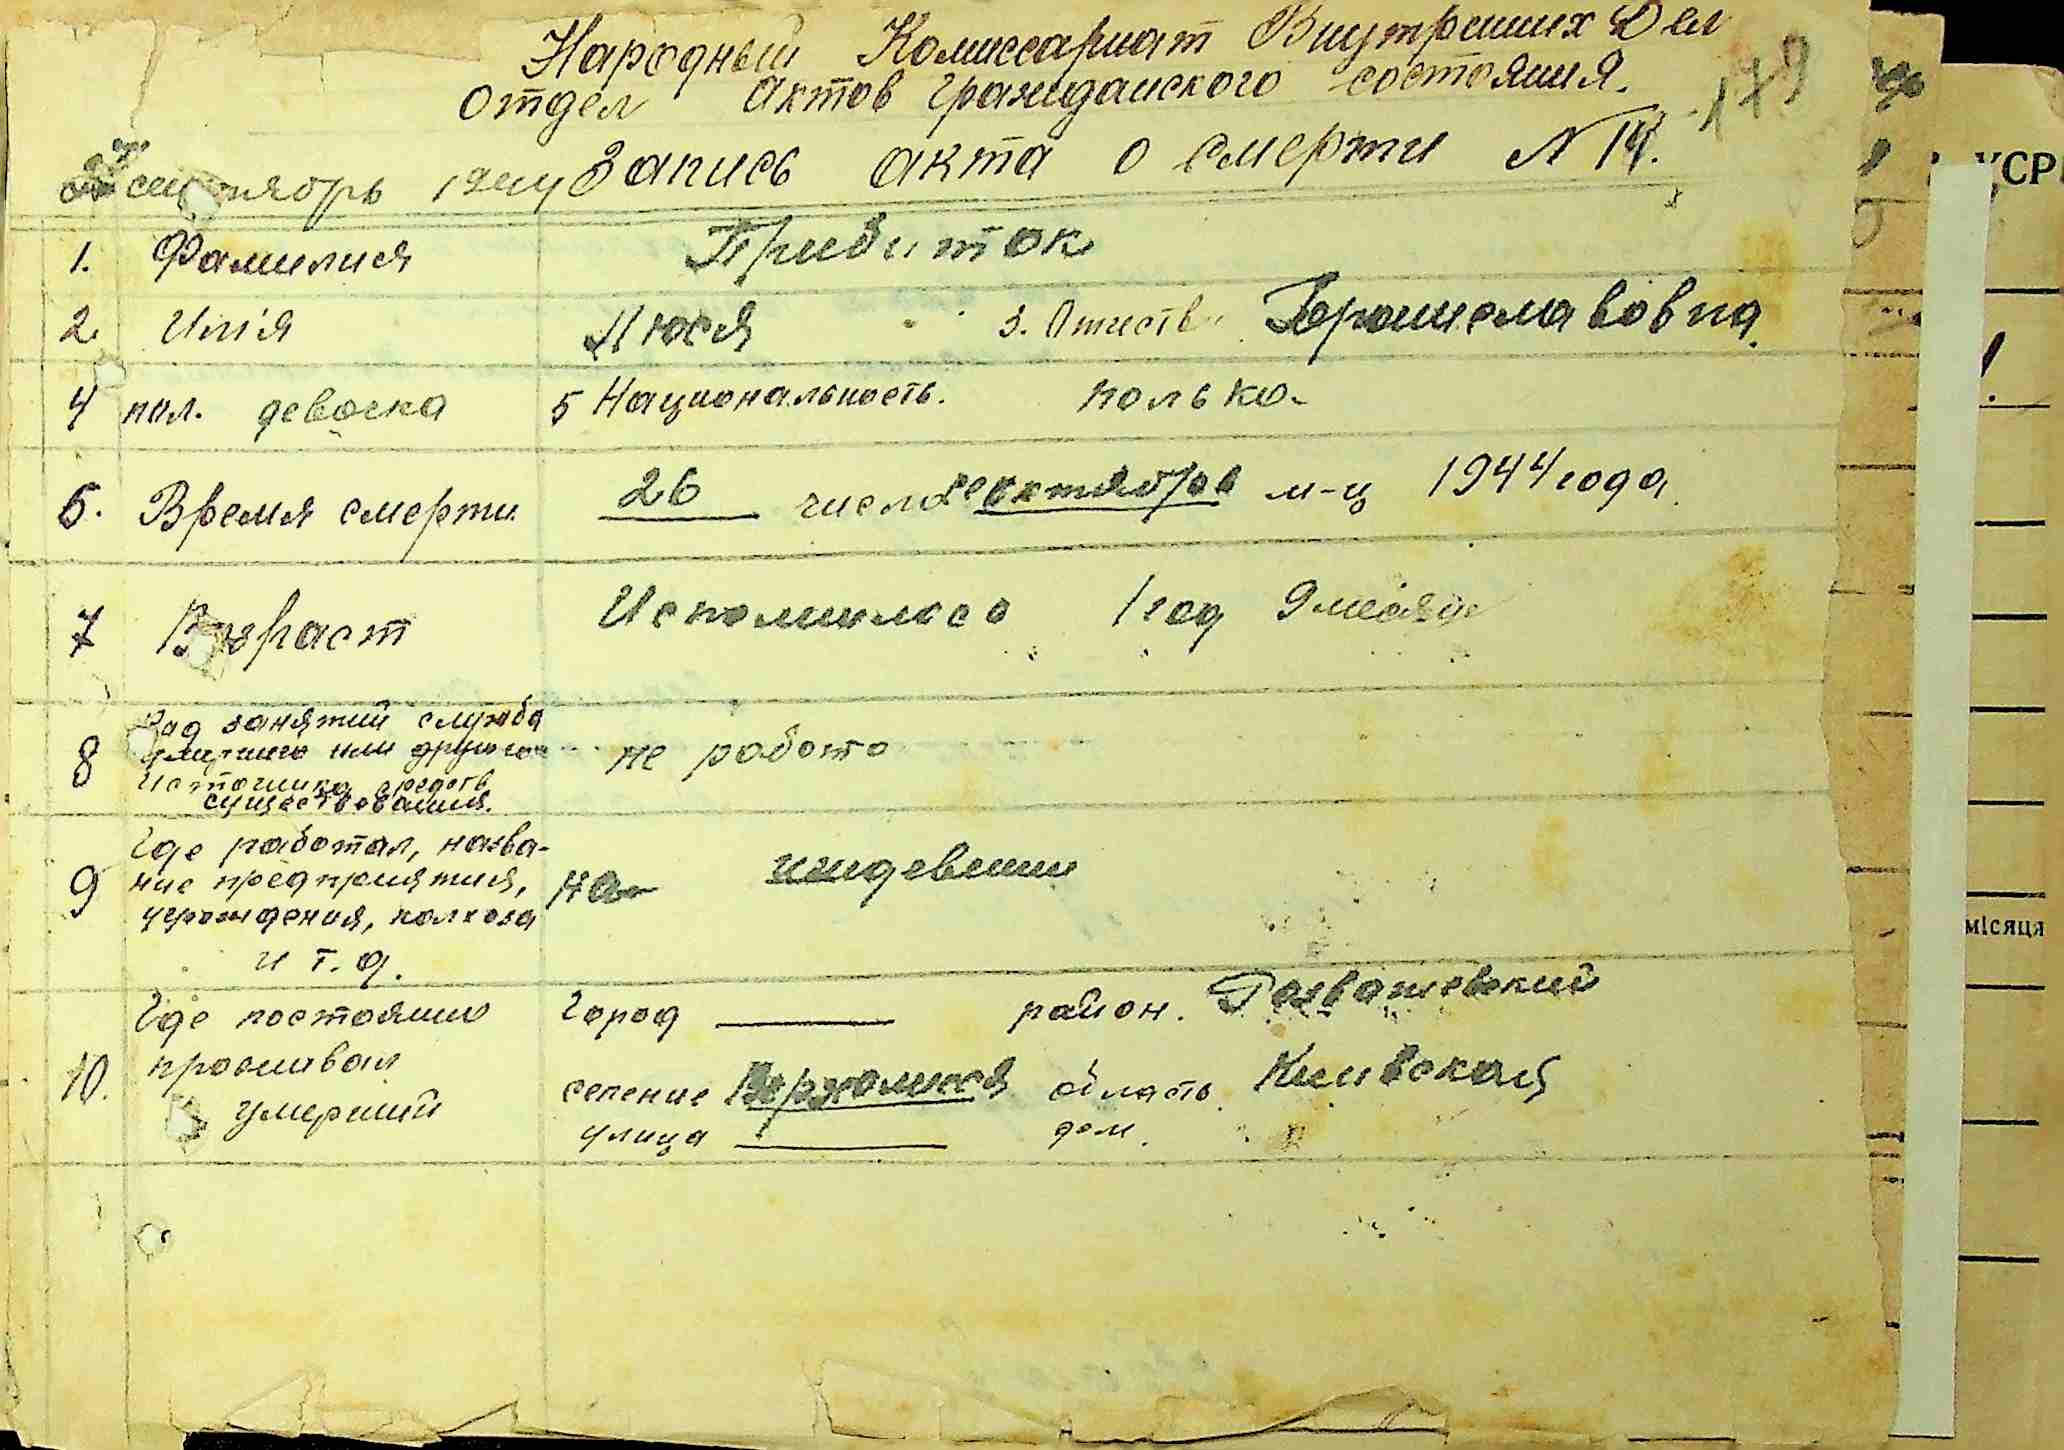 Народный Комиссариат Внутрених Дел
Отдел Актов Гражданского состояния.
179
Запись акта о смерти N 14.
1944
1. Фамилия Прибиток
2. Имя Люся 3. Отчеств Брониславовна.
4 пол. девочка 5 Национальность. полька
6. Время смерти 26 числа октября м-ц 1944 года.
7 Возраст Исполнилос 1 год 9 месяце
8 Род занятий служба
умершего или другого
источника средств
существования.
не работа
9 Где работал, назва-
ние предприятия,
учреждения, колхоза
и т. д.
на иждевении
10. Где постоянно
проживал
умерший
Город район. Розважевский
селение область Киивская
улица дом.
УСР
місяця